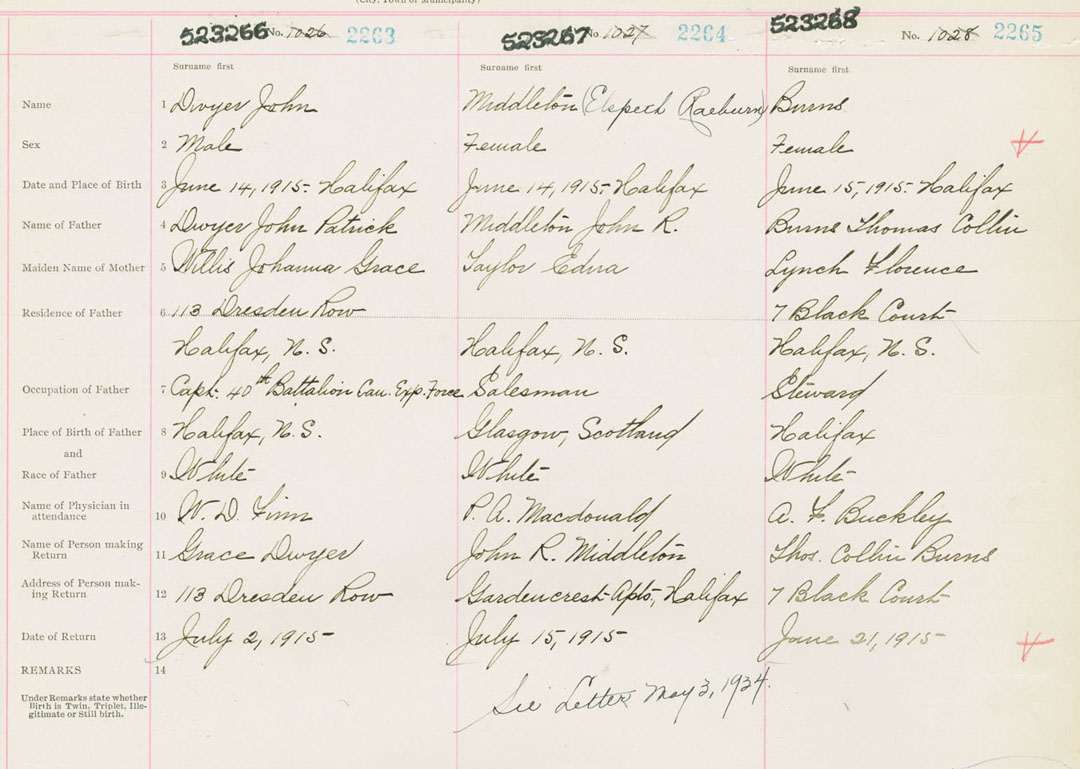 (City, Town or Municipality)
523266 No. 1026 2263 523267 No 1027 2264 523268 No. 1028 2265
Surname first Surname first Surname first
Name 1 Dwyer John Middleton (Elspeth Raeburn) Burns
Sex 2 Male Female Female
Date and Place of Birth 3 June 14, 1915 - Halifax June 14, 1915 - Halifax June 15, 1915 - Halifax
Name of Father 4 Dwyer John Patrick Middleton John R. Burns Thomas Collin
Maiden Name of Mother 5 Willis Johanna Grace Taylor Edna Lynch Florence
Residence of Father 6 113 Dresden Row 7 Black Court
Halifax, N. S. Halifax, N. S. Halifax, N. S.
Occupation of Father 7 Capt. 40th Battalion Can. Exp. Force Salesman Steward
Place of Birth of Father 8 Halifax, N. S. Glasgow, Scotland Halifax
and
Race of Father 9 White White White
Name of Physician in
attendance 10 W. D. Finn P. A. Macdonald A. F. Buckley
Name of Person making
Return 11 Grace Dwyer John R. Middleton Thos. Collin Burns
Address of Person mak-
ing Return 12 113 Dresden Row Gardencrest Apts, Halifax 7 Black Court
Date of Return 13 July 2, 1915 July 15, 1915 June 21, 1915
REMARKS 14
Under Remarks state whether
Birth is Twin, Triplet, Ille-
gitimate or Still birth.
See Letter May 3, 1934.